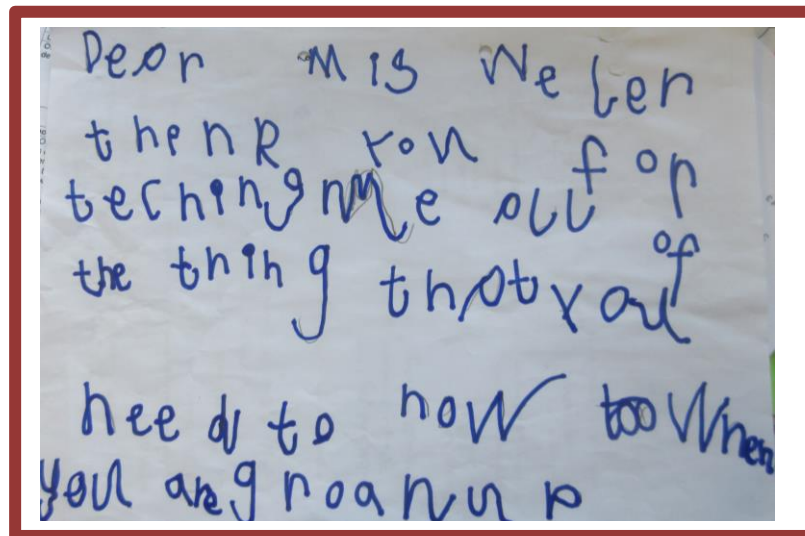 Dear Mis Weler
thenk you for
teching me all of
the thing that you
need to now when
you are groan up